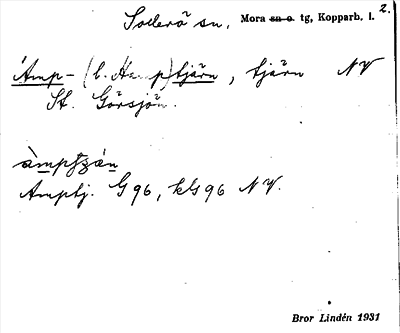 2.
Sollerö sn. Mora sn o. tg, Kopparb. l.
Ämp- (l. Hamp)tjärn, tjärn NV
St. Görsjön.
Amptj. G 96, kG 96 NV.
Bror Lindén 1931